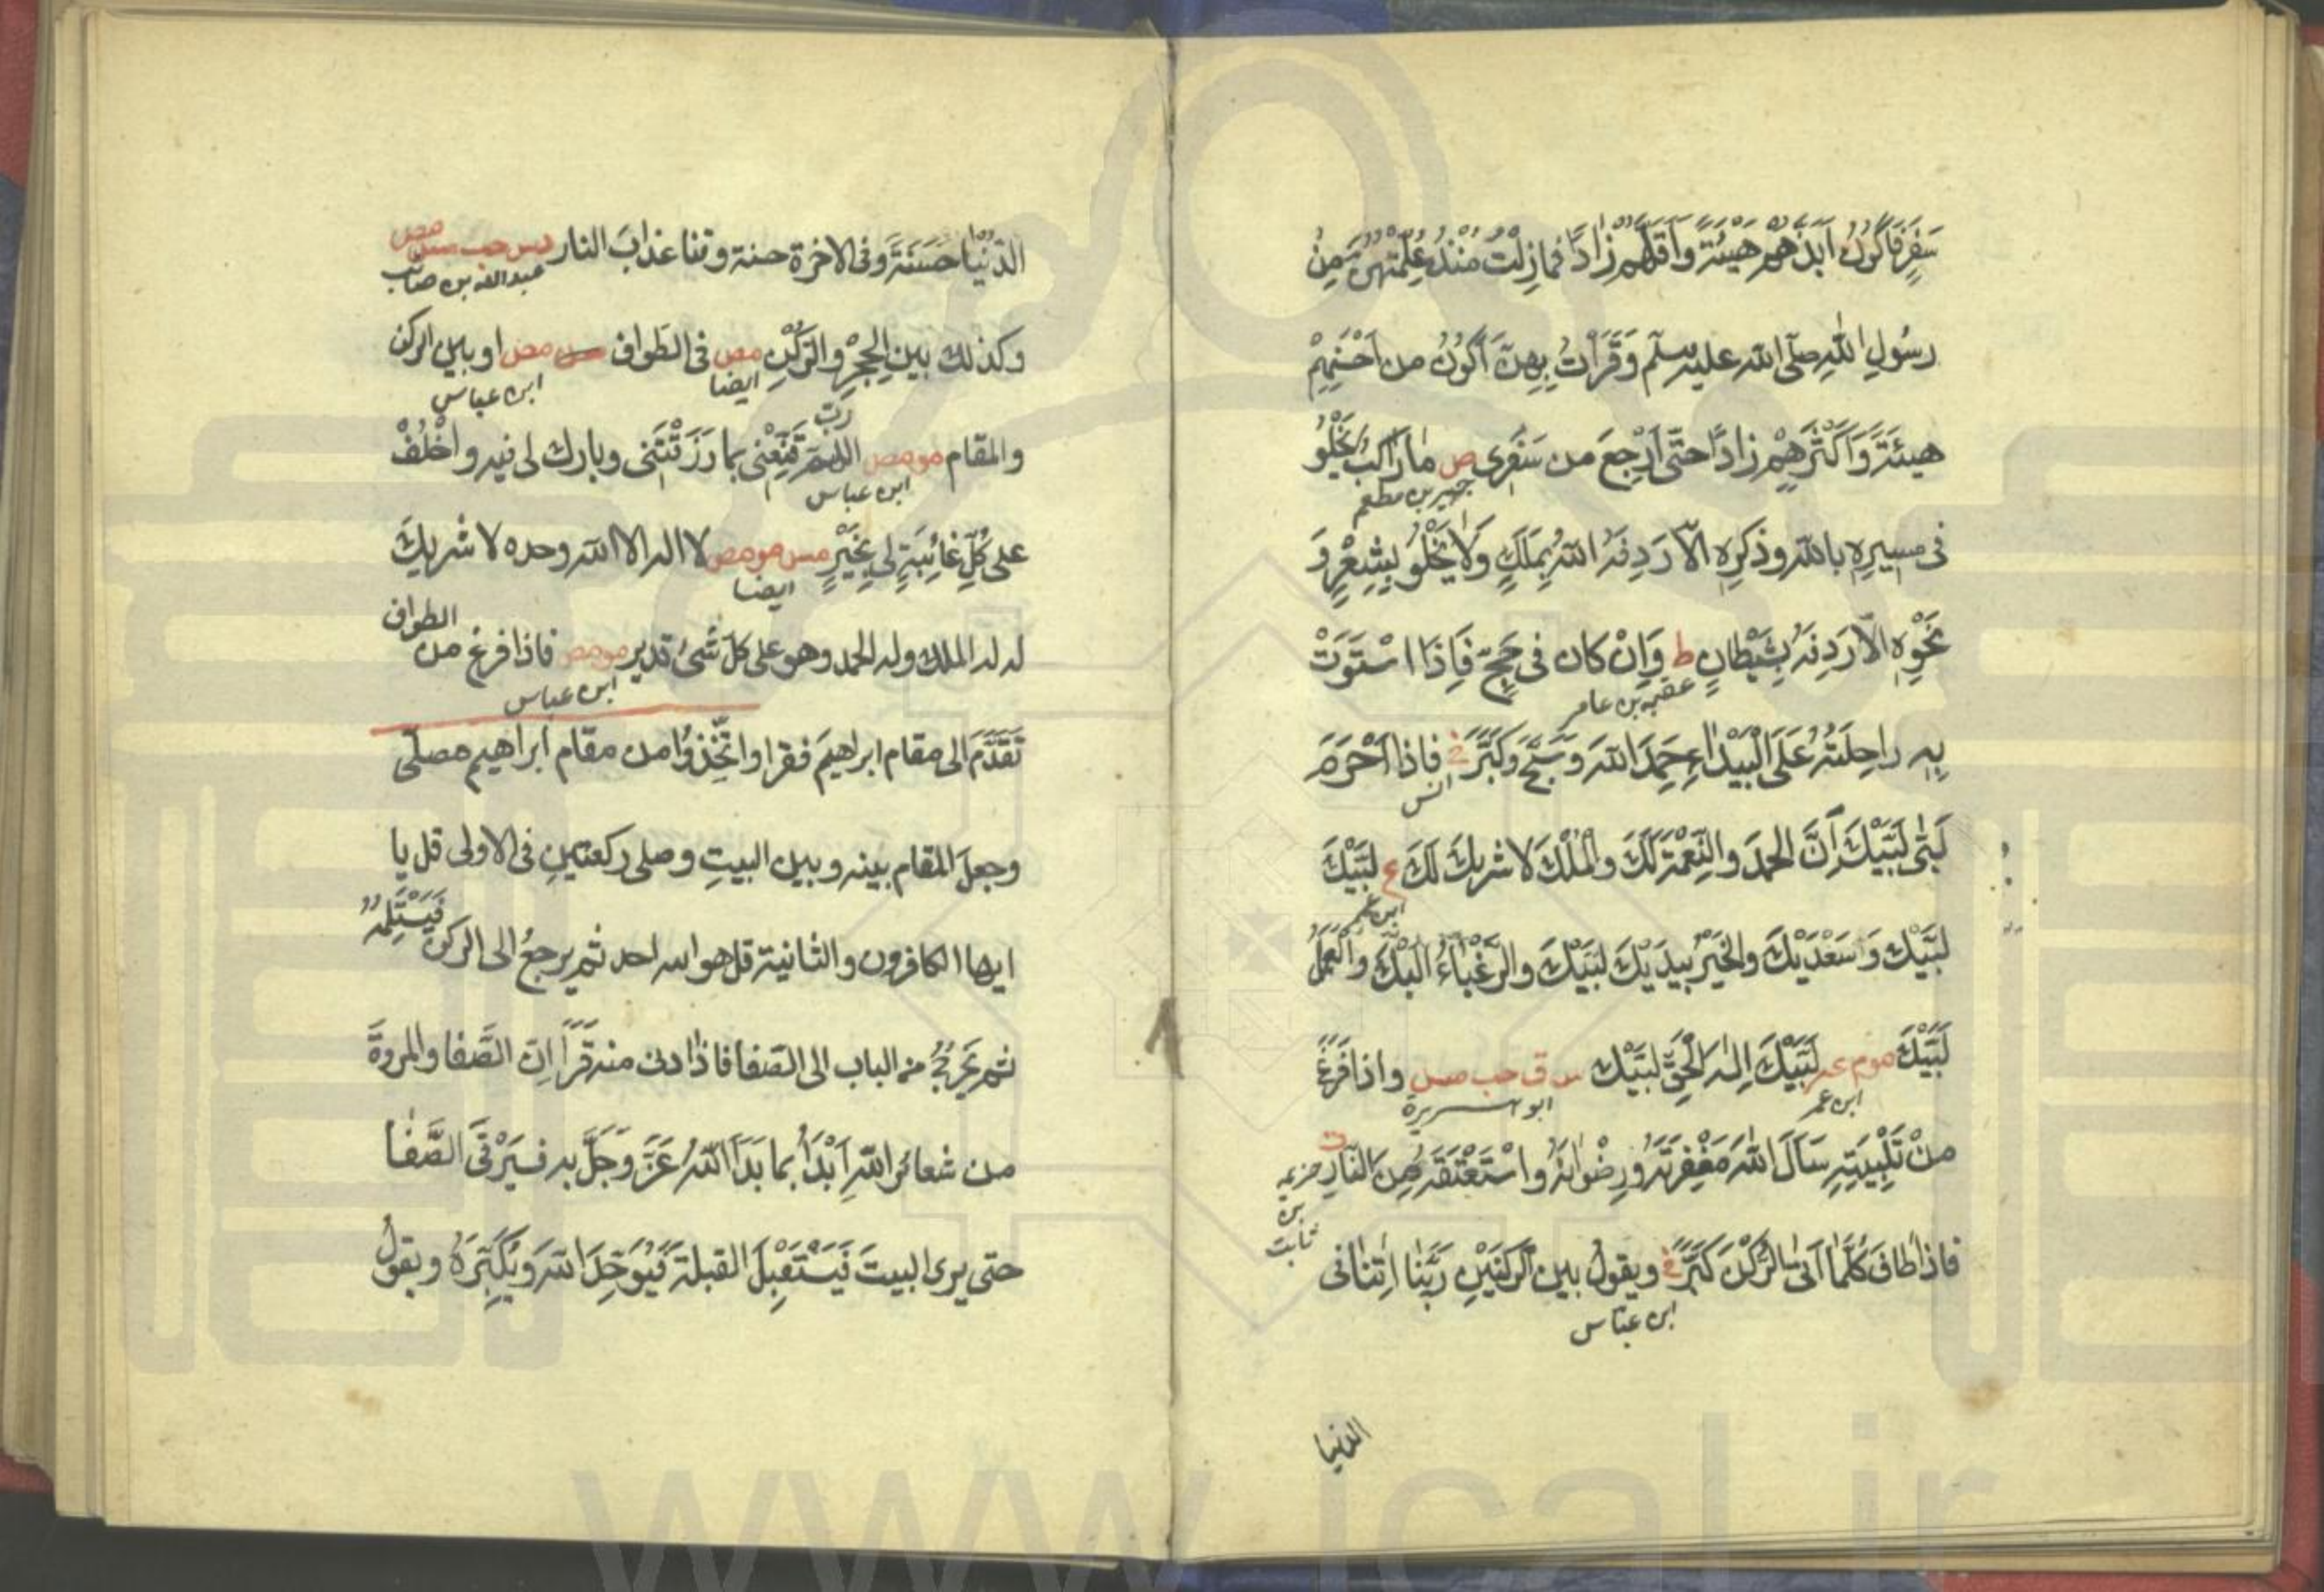 سَفَرٍ فَاَكُوْنُ اَبَذَّهُمْ هَيْئَةً وَاَقَلَّهُمْ زَادًا فَمَا زِلْتُ مُنْذُ عُلِّمْتُهُنَّ مِنْ
رَسُولِ اللهِ صلّى الله عليه وسلّم وَقَرَأْتُ بِهِنَّ اَكُوْنُ من اَحْسَنِهِمْ
هيئَةً وَاَكْثَرِهِمْ زادًا حتّى اَرْجِعَ من سَفَرِى ص ما رَاكِبٌ يَخْلُوْ
جبير بن مطعم
فى مسيرِهِ بالله وذِكرِهِ الّا رَدِفَهُ اللهُ بِمَلَكٍ وَلَا يَخْلُوْ بِشِعْرٍ وَ
نَحْوِهِ الّا رَدِفَهُ بِشَيْطَانٍ ط وَاِنْ كان فى حَجٍّ فَاِذَا اسْتَوَتْ
عقبه بن عامر
بِهِ راحِلَتُهُ عَلَى الْبَيْدَاءِ حَمِدَ اللهَ وَسَبَّحَ وَكَبَّرَ خ فاذا اَحْرَمَ
انس
لَبّٰى لَبَّيْكَ اِنَّ الحمدَ والنِّعْمَةَ لَكَ والْمُلْكَ لا شريكَ لَكَ ع لَبَّيْكَ
ابن عمر
لَبَّيْكَ وَسَعْدَيْكَ والخَيْرُ بِيَدَيْكَ لَبَّيْكَ والرَّغْبَاءُ اليْكَ وَالْعَمَلُ
لَبَّيْكَ موم عه لَبَّيْكَ اِلٰهَ الْحَقِّ لَبَّيْكَ س ق حب مس واذا فَرَغَ
ابن عمر ابو هريرة
مِنْ تَلْبِيَتِهِ سَاَلَ اللهَ مَغْفِرَتَهُ وَرِضْوَانَهُ وَاسْتَعْتَقَهُ مِنَ النَّارِ ط
خزيمه بن ثابت
فاذا طَافَ كُلَّمَا اَتَى الرُّكْنَ كَبَّرَ خ ويقولُ بين الركنَيْنِ رَبَّنَا اٰتِنَا فى
ابن عبّاس
الدنيا
الدُّنْيَا حَسَنَةً وَفى الاخرَة حسنة وقنا عذابَ النار د س حب مس مص
عبد الله بن صائب
وكذلك بينِ الحِجْرِ والرُّكْنِ مص فى الطواف مس مص او بين الركن
ايضا ابن عباس
والمقام مو مص اللهمّ رَبِّ قَنِّعْنِى بما رَزَقْتَنِى وبارك لى فيه واخْلُفْ
ابن عباس
على كُلِّ غَائِبَةٍ لِى بِخَيْرٍ مس مو مص لا اله الا الله وحده لا شريكَ
ايضا
له له الملك وله الحمد وهو على كلّ شَىْءٍ قدير مو مص فاذا فرغ من الطواف
ابن عباس
تَقَدَّمَ الى مقام ابراهيمَ فقرا واتَّخِذُوْا من مقام ابراهيم مصلّى
وجعلَ المقام بينه وبين البيتِ وصلى ركعتينِ فى الاولى قل يا
ايها الكافرون والثانية قل هو الله احد ثم يرجعُ الى الركن فَيَسْتَلِمُهُ
ثم يَخْرُجُ من الباب الى الصّفا فاذا دنى منه قَرَأَ اِنّ الصَّفا والمروةَ
من شعائر اللهِ اَبْدَأُ بما بَدَاَ اللهُ عَزَّ وَجَلَّ به فَيَرْقَى الصَّفَا
حتى يرى البيتَ فَيَسْتَقْبِلَ القبلةَ فَيُوَحِّدَ اللهَ وَيُكَبِّرَهُ ويقولُ
www.ical.ir